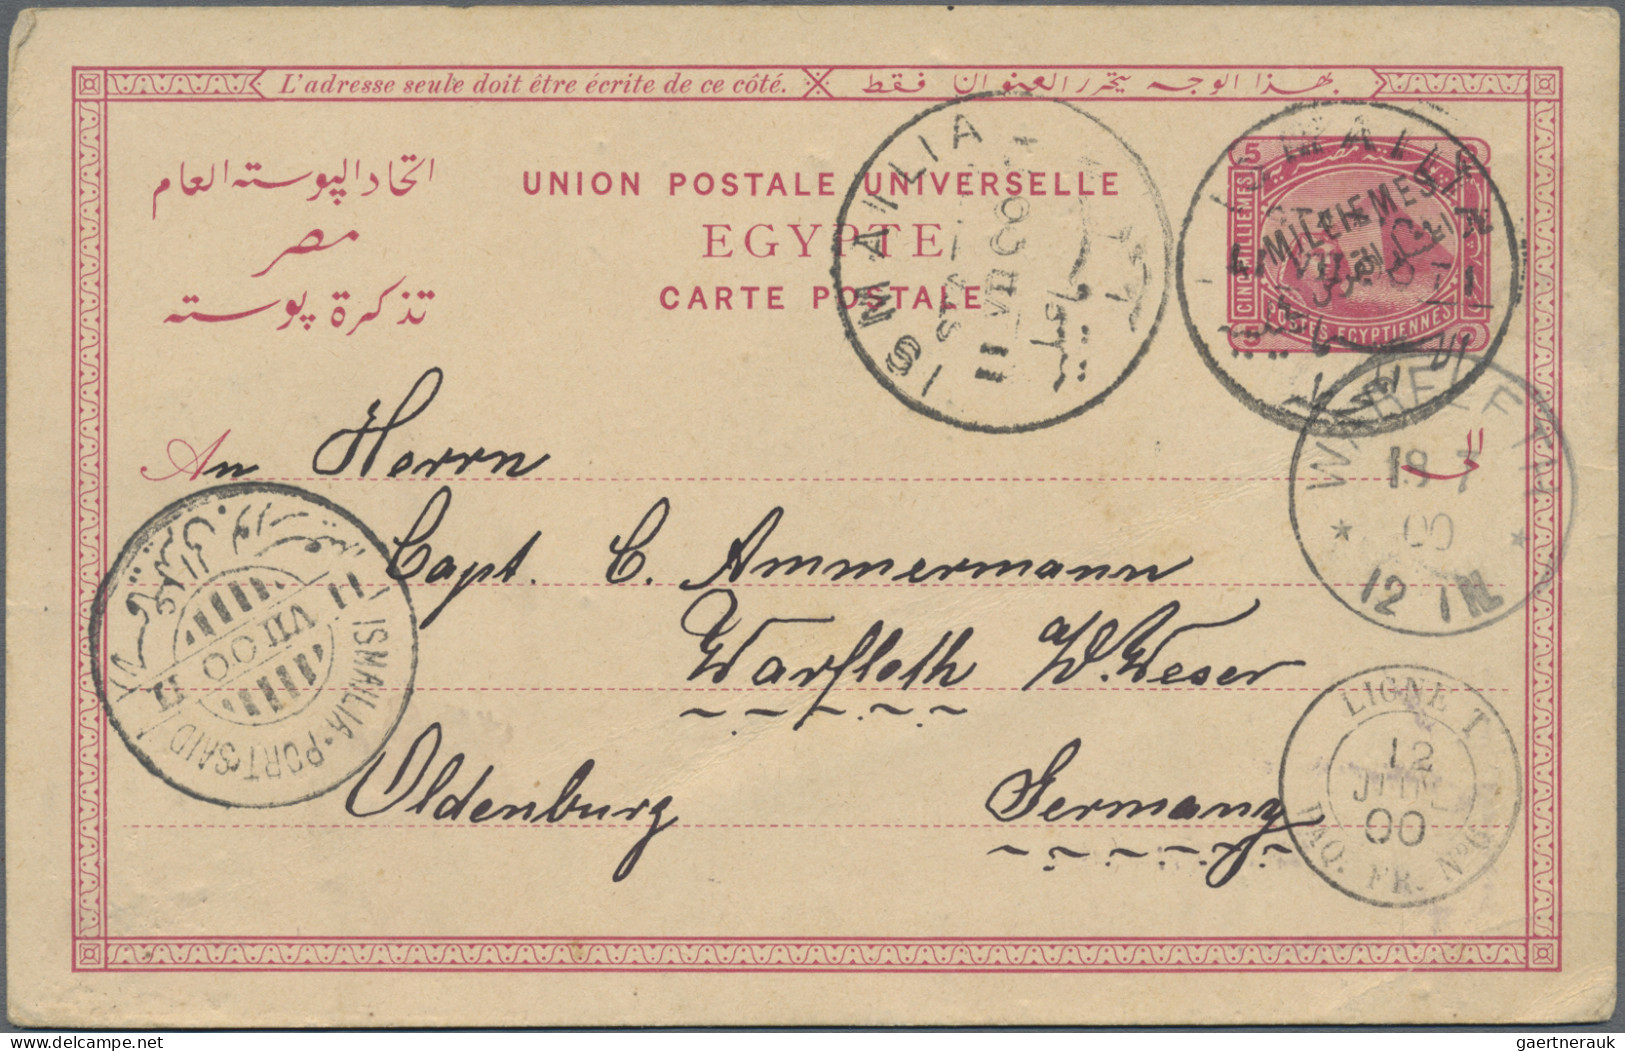 L'adresse seule doit être écrite de ce côté. بهذا الوجه يحرر العنوان فقط
اتحاد البوسته العام
مصر
تذكرة بوسته
UNION POSTALE UNIVERSELLE
EGYPTE
CARTE POSTALE
5
CINQ MILLIEMES
POSTES EGYPTIENNES
4 MILLIEMES
ISMAILIA
11 VII 00
ISMAILIA
An Herrn
الى
Capt. C. Ammermann
Warfleth a/W. Weser
Oldenburg Germany
ISMAILIA-PORT SAID
11 VII 00
WARFLETH
19 7
00
12 1N
LIGNE T
12
JUIL
00
PAQ. FR. No 6
gaertnerauk